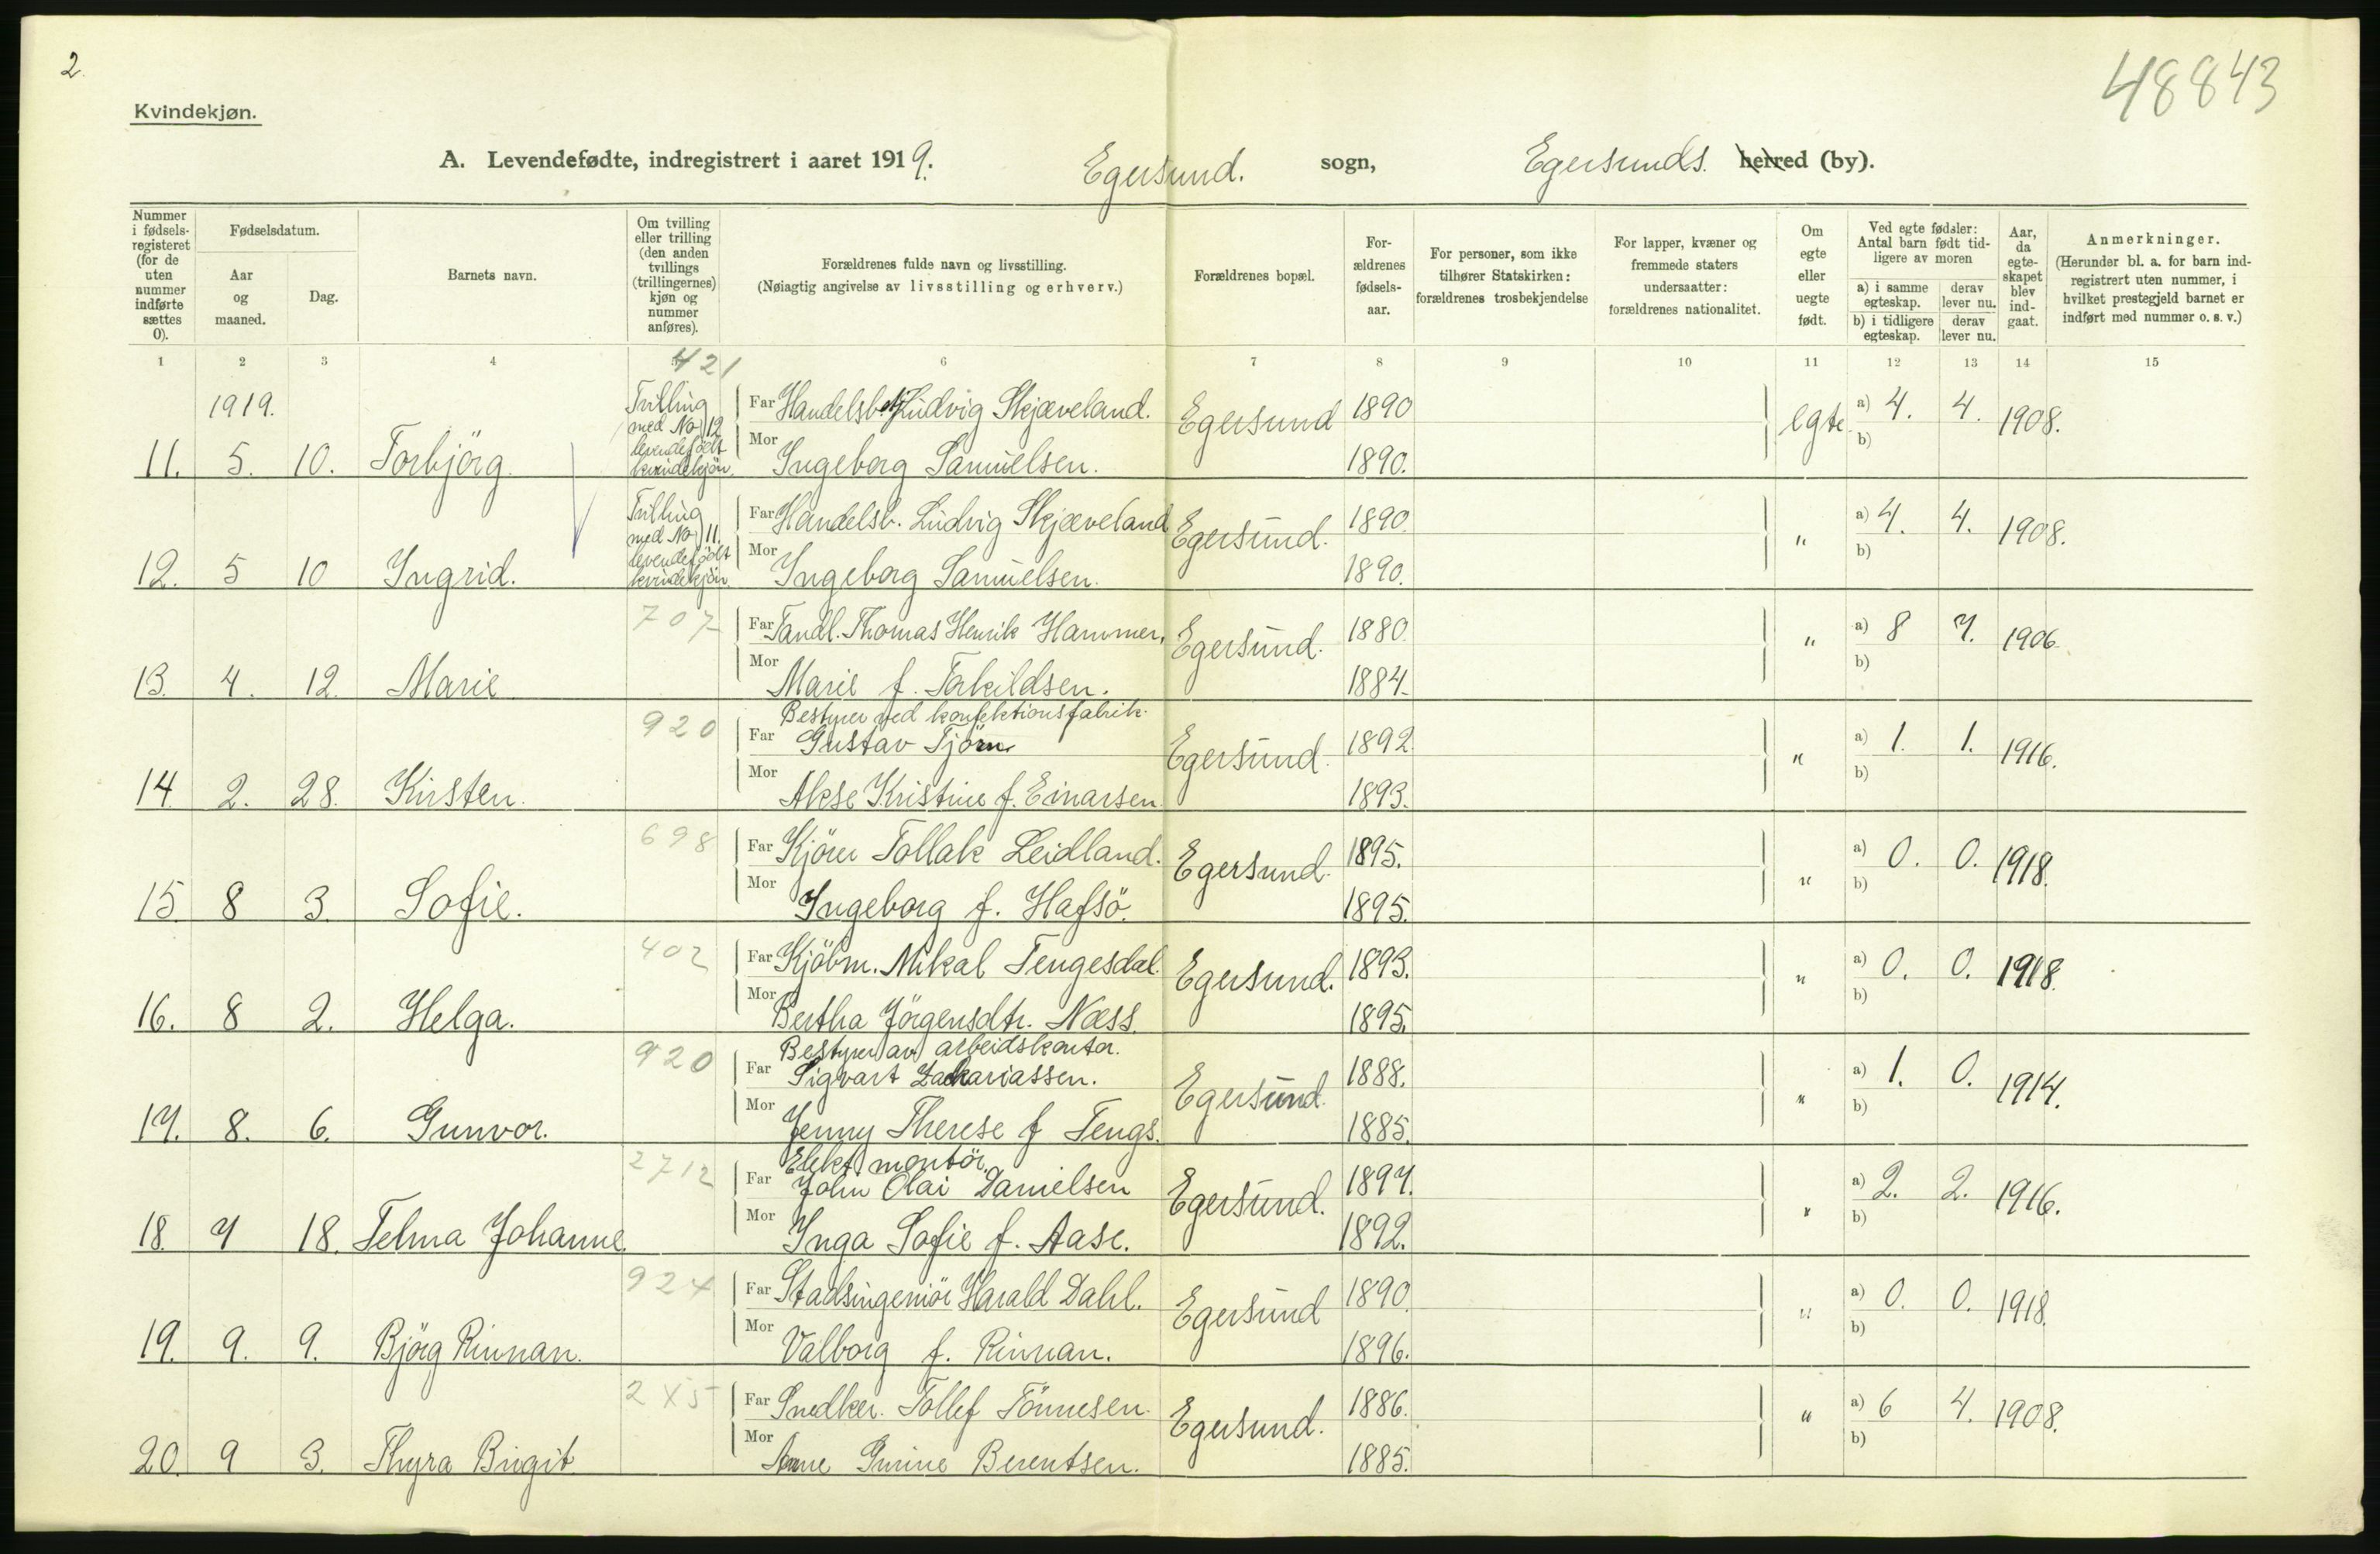 2.
48843
Kvindekjøn.
A. Levendefødte, indregistrert i aaret 1919. Egersund. sogn, Egersunds. herred (by).
Nummer i fødselsregisteret (for de uten nummer indførte sættes 0).
Fødselsdatum.
Aar og maaned.
Dag.
Barnets navn.
Om tvilling eller trilling (den anden tvillings (trillingernes) kjøn og nummer anføres).
Forældrenes fulde navn og livsstilling.
(Nøiagtig angivelse av livsstilling og erhverv.)
Forældrenes bopæl.
Forældrenes fødselsaar.
For personer, som ikke tilhører Statskirken: forældrenes trosbekjendelse
For lapper, kvæner og fremmede staters undersaatter: forældrenes nationalitet.
Om egte eller uegte født.
Ved egte fødsler: Antal barn født tidligere av moren
a) i samme egteskap. derav lever nu.
b) i tidligere egteskap. derav lever nu.
Aar, da egteskapet blev indgaat.
Anmerkninger.
(Herunder bl. a. for barn indregistrert uten nummer, i hvilket prestegjeld barnet er indført med nummer o. s. v.)
1 2 3 4 6 7 8 9 10 11 12 13 14 15
421
1919.
Tvilling med No 12 levendefödt kvindekjön.
Far Handelsbetj. Ludvig Skjæveland. Egersund 1890 egte a) 4. 4. 1908.
11. 5. 10. Torbjörg. Mor Ingeborg Samuelsen. 1890. b)
Tvilling med No 11. levendefödt kvindekjön.
Far Handelsb. Ludvig Skjæveland Egersund. 1890. " a) 4. 4. 1908.
12. 5 10 Ingrid. Mor Ingeborg Samuelsen. 1890. b)
707
Far Tandl. Thomas Henrik Hammer, Egersund. 1880. " a) 8 7. 1906
13. 4. 12. Marie Mor Marie f. Torkildsen. 1884. b)
920 Bestyrer ved konfektionsfabrik.
Far Gustav Tjörn Egersund. 1892. " a) 1. 1. 1916.
14. 2. 28. Kirsten. Mor Akse Kristine f. Einarsen. 1893. b)
698
Far Kjörer Tollak Leidland. Egersund. 1895. " a) 0. 0. 1918.
15. 8 3. Sofie. Mor Ingeborg f. Hafsö. 1895. b)
402
Far Kjöbm. Mikal Tengesdal. Egersund. 1893. " a) 0. 0. 1918.
16. 8 2. Helga. Mor Bertha Jörgensdtr. Næss. 1895. b)
920 Bestyrer av arbeidskontor.
Far Sigvart Zakariassen. Egersund. 1888. " a) 1. 0. 1914.
17. 8. 6. Gunvor. Mor Jenny Therese f Tengs. 1885. b)
2712 Elekt. montör.
Far John Olai Danielsen Egersund. 1897. " a) 2. 2. 1916.
18. 7 18. Telma Johanne. Mor Inga Sofie f. Aase. 1892. b)
924
Far Stadsingeniör Harald Dahl. Egersund 1890. " a) 0. 0. 1918.
19. 9. 9. Björg Rinnan. Mor Valborg f. Rinnan. 1896. b)
2X5
Far Snedker. Tollef Tönnesen. Egersund. 1886. " a) 6 4. 1908.
20. 9 3. Thyra Birgit Mor Anne Gurine Berentsen. 1885. b)